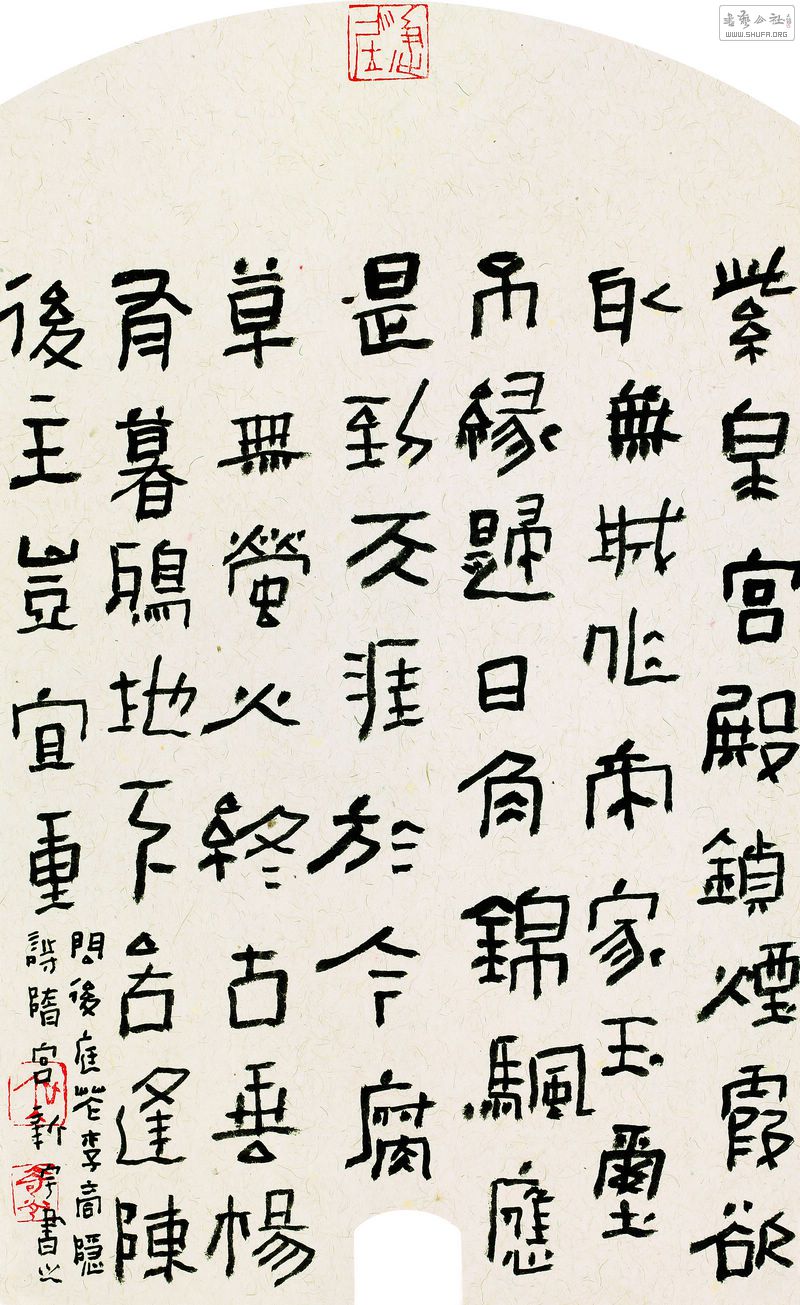 紫泉宮殿鎖煙霞欲
取無城作帝家玉璽
不緣歸日角錦颿應
是到天涯於今腐
草無螢火終古垂楊
有暮鴉地下若逢陳
後主豈宜重
問後庭花李商隱
詩隋宮新宇書之
書藝公社
WWW.SHUFA.ORG